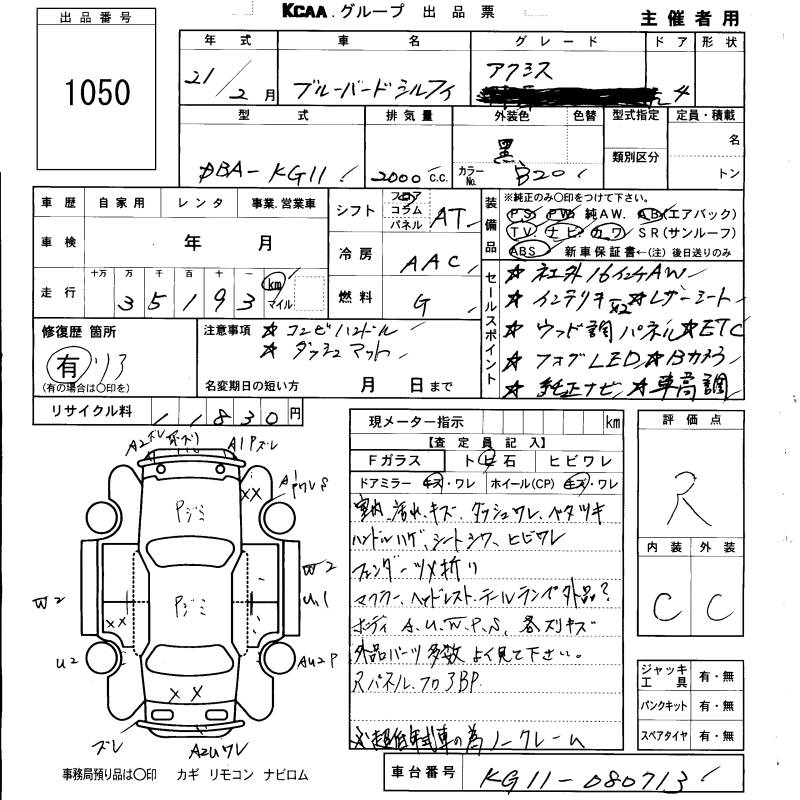 KCAA.グループ 出品票
主催者用
出品番号
1050
年式 車名 グレード ドア 形状
21/2月 ブルーバードシルフィ アクシス 4
型式 排気量 外装色 色替 型式指定 定員・積載
DBA-KG11 2000c.c. 黒 カラーNo. B20 類別区分 名
トン
車歴 自家用 レンタ 事業.営業車
シフト フロア コラム パネル AT
装備品
※純正のみ○印をつけて下さい。
PS PW 純AW. AB(エアバック)
TV ナビ カワ SR(サンルーフ)
ABS 新車保証書←(注)後日送りのみ
車検 年 月
冷房 AAC
走行 十万 万 千 百 十 一 35193 km マイル
燃料 G
セールスポイント
★社外16インチAW
★インテリキーx2★レザーシート
★ウッド調パネル★ETC
★フォグLED★Bカメラ
★純正ナビ★車高調
修復歴 箇所
有 リア
(有の場合は○印を)
注意事項 ★コンビハンドル
★ダッシュマット
名変期日の短い方 月 日まで
リサイクル料 11830円
現メーター指示 km
【査定員記入】
Fガラス トビ石 ヒビワレ
ドアミラー キズ・ワレ ホイール(CP) キズ・ワレ
室内、汚れ、キズ、ダッシュワレ、ベタツキ
ハンドルハゲ、シートシワ、ヒビワレ
フェンダーツメ折り
マフラー、ヘッドレスト、テールランプ外品?
ボディ A.U.W.P.S、各所キズ
外品パーツ多数よく見て下さい。
Rパネル.フロアBP.
※超低年式車の為ノークレーム
評価点
R
内装 外装
C C
ジャッキ工具 有・無
パンクキット 有・無
スペアタイヤ 有・無
A2ズレ
A1Pズレ
XX
Pジミ
W2
W2
U1
Pジミ
XX
U2
AU2P
XX
ズレ
A2Uワレ
事務局預り品は○印 カギ リモコン ナビロム
車台番号 KG11-080713